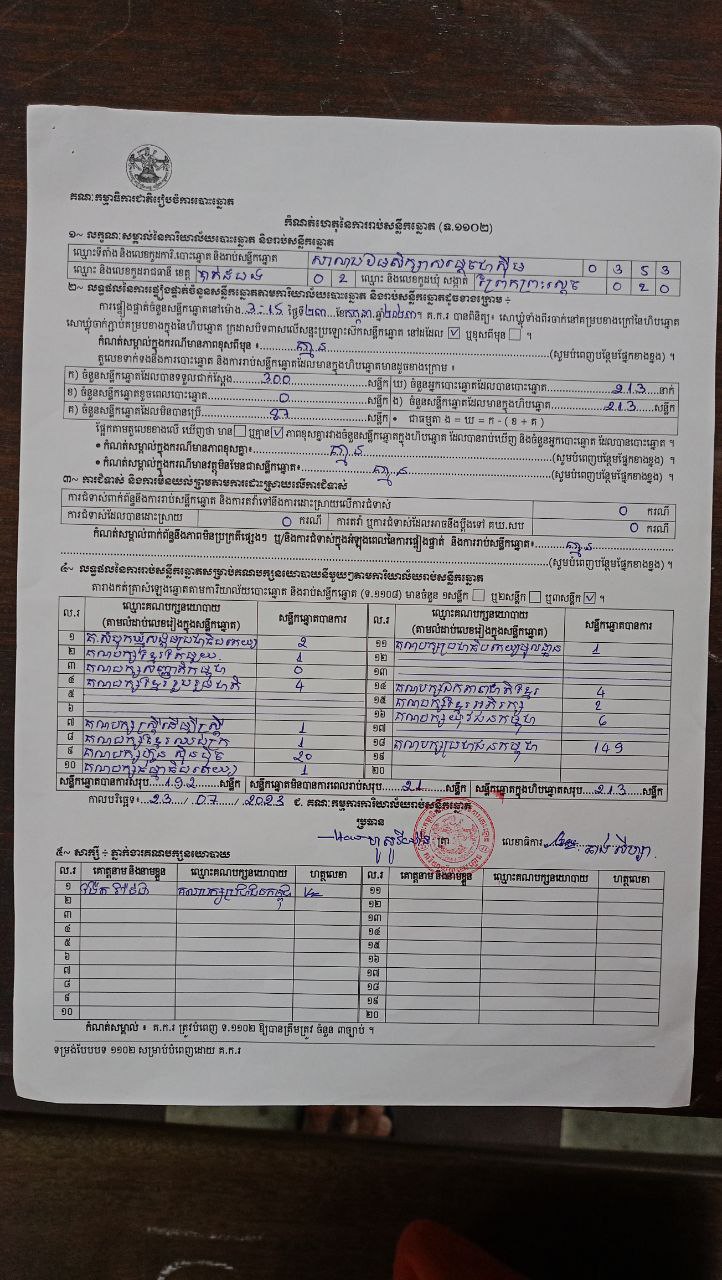 គណៈកម្មាធិការជាតិរៀបចំការបោះឆ្នោត
កំណត់ហេតុនៃការរាប់សន្លឹកឆ្នោត (ទ.១១០២)
១~ លក្ខណៈសម្គាល់នៃការិយាល័យបោះឆ្នោត និងរាប់សន្លឹកឆ្នោត
ឈ្មោះទីតាំង និងលេខកូដការិ.បោះឆ្នោត និងរាប់សន្លឹកឆ្នោត 0 3 5 3
ឈ្មោះ និងលេខកូដរាជធានី ខេត្ត បាត់ដំបង 0 2 ឈ្មោះ និងលេខកូដឃុំ សង្កាត់ ព្រែកព្រះស្ដេច 0 2 0
២~ លទ្ធផលនៃការផ្ទៀងផ្ទាត់ចំនួនសន្លឹកឆ្នោតតាមការិយាល័យបោះឆ្នោត និងរាប់សន្លឹកឆ្នោតដូចខាងក្រោម ÷
ការផ្ទៀងផ្ទាត់ចំនួនសន្លឹកឆ្នោតនៅម៉ោង 3:15 ថ្ងៃទី២៣ ខែកក្កដា ឆ្នាំ២០២៣។ គ.ក.រ បានពិនិត្យ៖ សោឃ្មុំទាំងពីរចាក់នៅគម្របខាងក្រៅនៃហិបឆ្នោត
សោឃ្មុំចាក់ភ្ជាប់គម្របខាងក្នុងនៃហិបឆ្នោត ក្រដាសបិទពាសលើសន្ទះប្រឡោះស៊កសន្លឹកឆ្នោត នៅដដែល ☑ ឬខុសពីមុន ☐ ។
កំណត់សម្គាល់ក្នុងករណីមានភាពខុសពីមុន ៖ គ្មាន (សូមបំពេញបន្ថែមផ្នែកខាងខ្នង) ។
តួលេខទាក់ទងនឹងការបោះឆ្នោត និងការរាប់សន្លឹកឆ្នោតដែលមានក្នុងហិបឆ្នោតមានដូចខាងក្រោម ៖
ក) ចំនួនសន្លឹកឆ្នោតដែលបានទទួលជាក់ស្តែង 300 សន្លឹក ឃ) ចំនួនអ្នកបោះឆ្នោតដែលបានបោះឆ្នោត 213 នាក់
ខ) ចំនួនសន្លឹកឆ្នោតខូចពេលបោះឆ្នោត 0 សន្លឹក ង) ចំនួនសន្លឹកឆ្នោតដែលមានក្នុងហិបឆ្នោត 213 សន្លឹក
គ) ចំនួនសន្លឹកឆ្នោតដែលមិនបានប្រើ 87 សន្លឹក • ជាធម្មតា ង = ឃ = ក - ( ខ + គ )
ផ្អែកតាមតួលេខខាងលើ ឃើញថា មាន ☐ ឬគ្មាន ☑ ភាពខុសគ្នារវាងចំនួនសន្លឹកឆ្នោតក្នុងហិបឆ្នោត ដែលបានរាប់ឃើញ និងចំនួនអ្នកបោះឆ្នោត ដែលបានបោះឆ្នោត ។
• កំណត់សម្គាល់ក្នុងករណីមានភាពខុសគ្នា៖ គ្មាន (សូមបំពេញបន្ថែមផ្នែកខាងខ្នង) ។
• កំណត់សម្គាល់ក្នុងករណីមានវត្ថុមិនមែនជាសន្លឹកឆ្នោត៖ គ្មាន (សូមបំពេញបន្ថែមផ្នែកខាងខ្នង) ។
៣~ ការជំទាស់ និងការមិនយល់ព្រមតាមការដោះស្រាយលើការជំទាស់
ការជំទាស់ពាក់ព័ន្ធនឹងការរាប់សន្លឹកឆ្នោត និងការតវ៉ាទៅនឹងការដោះស្រាយលើការជំទាស់ 0 ករណី
ការជំទាស់ដែលបានដោះស្រាយ 0 ករណី ការតវ៉ា ឬការជំទាស់ដែលអាចនឹងប្តឹងទៅ គឃ.សប 0 ករណី
កំណត់សម្គាល់ពាក់ព័ន្ធនឹងភាពមិនប្រក្រតីផ្សេងៗ ឬ/និងការជំទាស់ក្នុងអំឡុងពេលនៃការផ្ទៀងផ្ទាត់ និងការរាប់សន្លឹកឆ្នោត៖ គ្មាន
(សូមបំពេញបន្ថែមផ្នែកខាងខ្នង) ។
៤~ លទ្ធផលនៃការរាប់សន្លឹកឆ្នោតសម្រាប់គណបក្សនយោបាយនីមួយៗតាមការិយាល័យរាប់សន្លឹកឆ្នោត
តារាងកត់ត្រាសំឡេងឆ្នោតតាមការិយាល័យបោះឆ្នោត និងរាប់សន្លឹកឆ្នោត (ទ.១១០៨) មានចំនួន ១សន្លឹក ☐ ឬ២សន្លឹក ☐ ឬ៣សន្លឹក ☑ ។
ល.រ ឈ្មោះគណបក្សនយោបាយ (តាមលំដាប់លេខរៀងក្នុងសន្លឹកឆ្នោត) សន្លឹកឆ្នោតបានការ ល.រ ឈ្មោះគណបក្សនយោបាយ (តាមលំដាប់លេខរៀងក្នុងសន្លឹកឆ្នោត) សន្លឹកឆ្នោតបានការ
១ គ.សំបុកឃ្មុំសង្គមប្រជាធិបតេយ្យ 2 ១១ 1
២ គណបក្សខ្មែរតែមួយ 1 ១២
៣ គណបក្សសញ្ជាតិកម្ពុជា 0 ១៣
៤ គណបក្សខ្មែររួបរួមជាតិ 4 ១៤ គណបក្សឯកភាពជាតិខ្មែរ 4
៥ ១៥ គណបក្សខ្មែរអភិរក្ស 2
៦ ១៦ គណបក្សយុវជនកម្ពុជា 6
៧ គណបក្សស្ត្រីដើម្បីស្ត្រី 1 ១៧
៨ គណបក្សខ្មែរឈប់ក្រ 1 ១៨ គណបក្សប្រជាជនកម្ពុជា 149
៩ គណបក្សហ្វ៊ុនស៊ិនប៉ិច 20 ១៩
១០ គណបក្សធម្មាធិបតេយ្យ 1 ២០
សន្លឹកឆ្នោតបានការសរុប 192 សន្លឹក សន្លឹកឆ្នោតមិនបានការពេលរាប់សរុប 21 សន្លឹក សន្លឹកឆ្នោតក្នុងហិបឆ្នោតសរុប 213 សន្លឹក
កាលបរិច្ឆេទ៖ 23 / 07 / 2023 ជ. គណៈកម្មការការិយាល័យរាប់សន្លឹកឆ្នោត
ប្រធាន
ត្រា លេខាធិការ
៥~ សាក្សី ÷ ភ្នាក់ងារគណបក្សនយោបាយ
ល.រ គោត្តនាម និងនាមខ្លួន ឈ្មោះគណបក្សនយោបាយ ហត្ថលេខា ល.រ គោត្តនាម និងនាមខ្លួន ឈ្មោះគណបក្សនយោបាយ ហត្ថលេខា
១ គណបក្សប្រជាជនកម្ពុជា ១១
២ ១២
៣ ១៣
៤ ១៤
៥ ១៥
៦ ១៦
៧ ១៧
៨ ១៨
៩ ១៩
១០ ២០
កំណត់សម្គាល់ ៖ គ.ក.រ ត្រូវបំពេញ ទ.១១០២ ឱ្យបានត្រឹមត្រូវ ចំនួន ៣ច្បាប់ ។
ទម្រង់បែបបទ ១១០២ សម្រាប់បំពេញដោយ គ.ក.រ